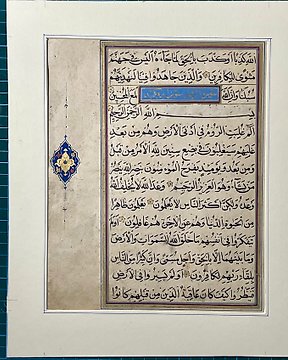 اللهِ كَذِبًا اَوْ كَذَّبَ بِالْحَقِّ لَمَّا جَاءَهُ اَلَيْسَ فِي جَهَنَّمَ
مَثْوًى لِلْكَافِرِينَ وَالَّذِينَ جَاهَدُوا فِينَا لَنَهْدِيَنَّهُمْ
سُبُلَنَا وَاِنَّ اللهَ لَمَعَ الْمُحْسِنِينَ
بِسْمِ اللهِ الرَّحْمٰنِ الرَّحِيمِ
الم غُلِبَتِ الرُّومُ فِي اَدْنَى الْاَرْضِ وَهُمْ مِنْ بَعْدِ
غَلَبِهِمْ سَيَغْلِبُونَ فِي بِضْعِ سِنِينَ لِلّٰهِ الْاَمْرُ مِنْ قَبْلُ
وَمِنْ بَعْدُ وَيَوْمَئِذٍ يَفْرَحُ الْمُؤْمِنُونَ بِنَصْرِ اللهِ يَنْصُرُ
مَنْ يَشَاءُ وَهُوَ الْعَزِيزُ الرَّحِيمُ وَعْدَ اللهِ لَا يُخْلِفُ اللهُ
وَعْدَهُ وَلٰكِنَّ اَكْثَرَ النَّاسِ لَا يَعْلَمُونَ يَعْلَمُونَ ظَاهِرًا
مِنَ الْحَيٰوةِ الدُّنْيَا وَهُمْ عَنِ الْاٰخِرَةِ هُمْ غَافِلُونَ اَوَلَمْ
يَتَفَكَّرُوا فِي اَنْفُسِهِمْ مَا خَلَقَ اللهُ السَّمٰوَاتِ وَالْاَرْضَ
وَمَا بَيْنَهُمَا اِلَّا بِالْحَقِّ وَاَجَلٍ مُسَمًّى وَاِنَّ كَثِيرًا مِنَ النَّاسِ
بِلِقَاءِ رَبِّهِمْ لَكَافِرُونَ اَوَلَمْ يَسِيرُوا فِي الْاَرْضِ
فَيَنْظُرُوا كَيْفَ كَانَ عَاقِبَةُ الَّذِينَ مِنْ قَبْلِهِمْ كَانُوا